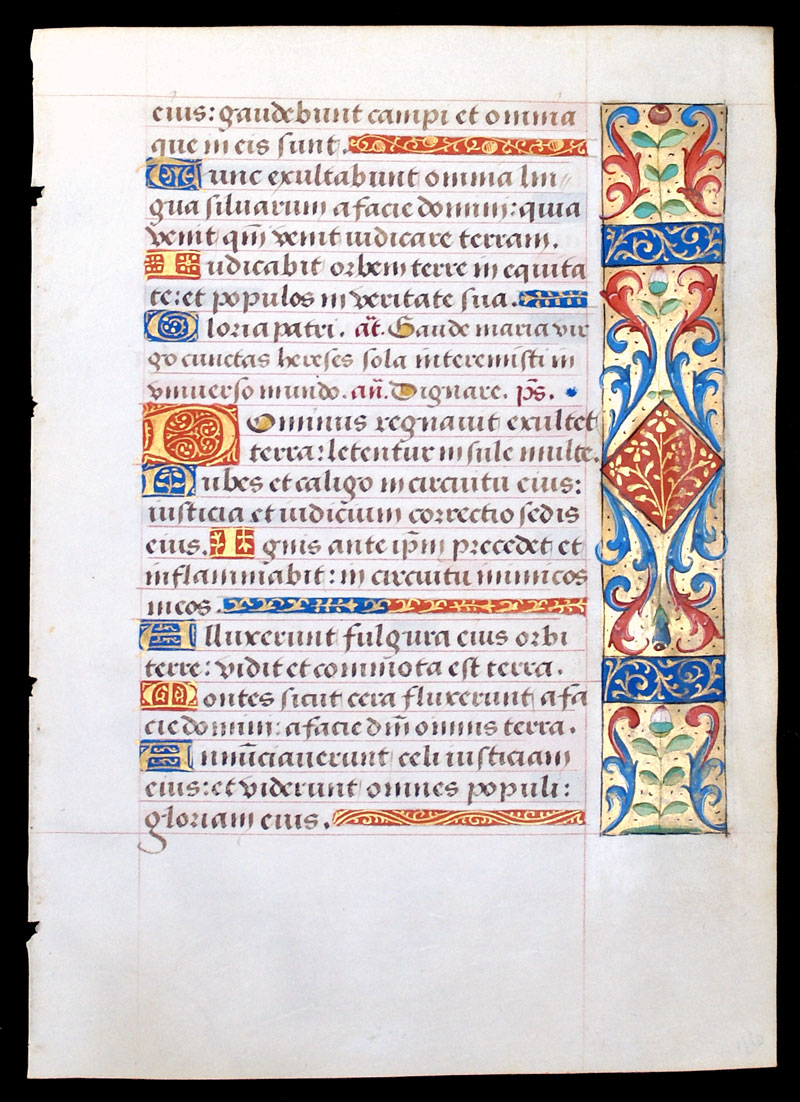 eius: gaudebunt campi et omnia
que in eis sunt.
Tunc exultabunt omnia lin
gua siluarum a facie domini: quia
venit qm̄ venit iudicare terram.
Iudicabit orbem terre in equita
te: et populos in veritate sua.
Gloria patri. at̄. Gaude maria vir
go cunctas hereses sola interemisti in
vniuerso mundo. an̄. Dignare. ps̄.
Dominus regnauit exultet
terra: letentur insule multe.
Nubes et caligo in circuitu eius:
iusticia et iudicium correctio sedis
eius. Ignis ante ip̄m precedet et
inflammabit: in circuitu inimicos
eius.
Alluxerunt fulgura eius orbi
terre: vidit et commota est terra.
Montes sicut cera fluxerunt a fa
cie domini: a facie dn̄i omnis terra.
Annūciauerunt celi iusticiam
eius: et viderunt omnes populi:
gloriam eius.